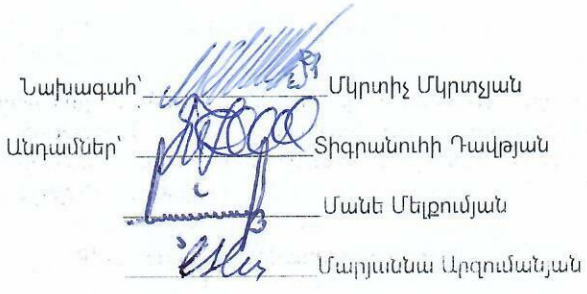 Նախագահ՝ Մկրտիչ Մկրտչյան
Անդամներ՝ Տիգրանուհի Դավթյան
Մանե Մելքումյան
Մարյաննա Արզումանյան